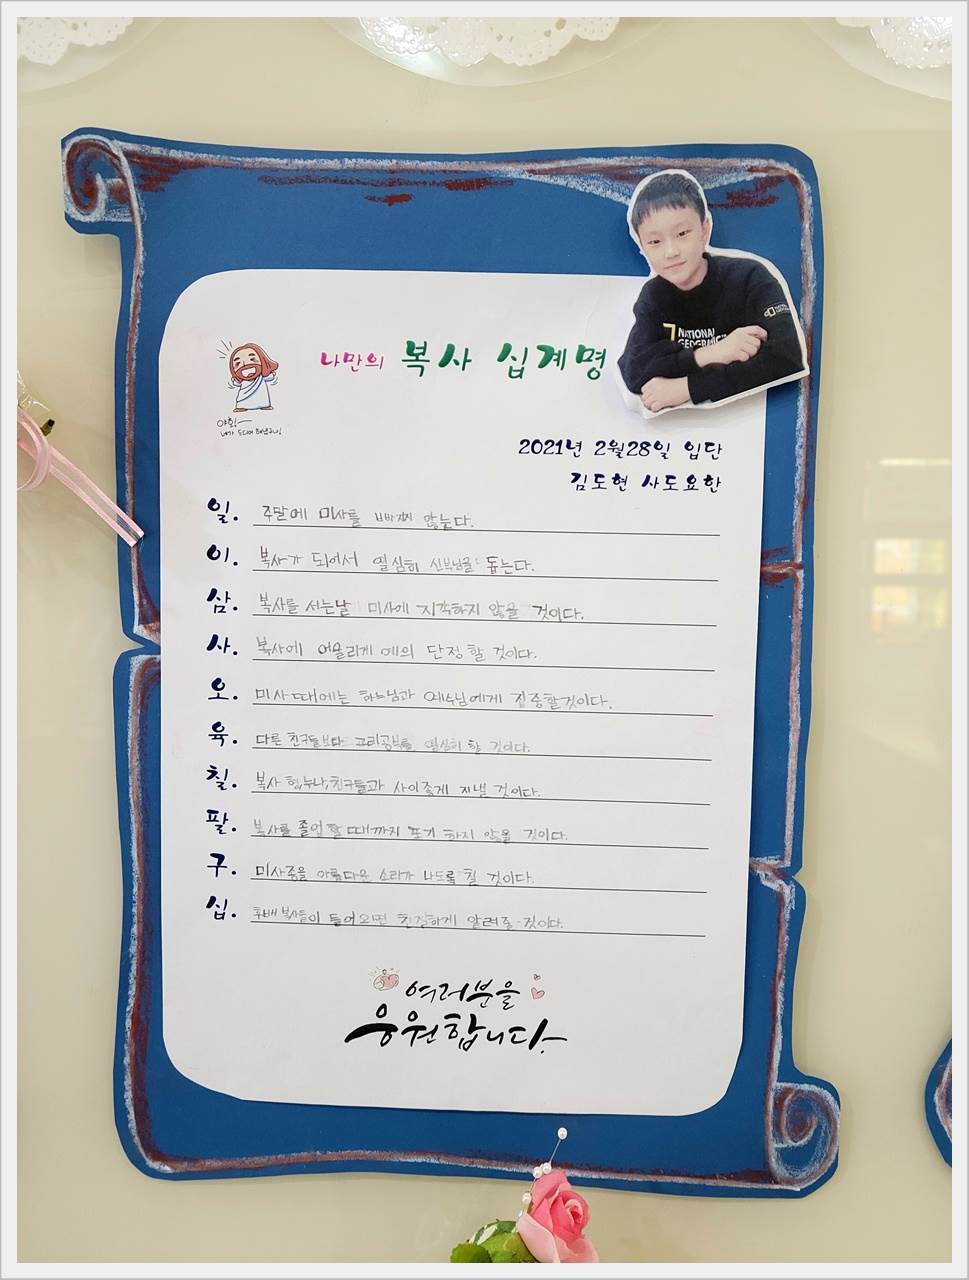 나만의 복사 십계명
NATIONAL
GEOGRAPHIC
야휘~
네가 드디어 해냈구나!
2021년 2월28일 입단
김도현 사도요한
일. 주말에 미사를 빠지지 않는다.
이. 복사가 되어서 열심히 신부님을 돕는다.
삼. 복사를 서는날 미사에 지각하지 않을 것이다.
사. 복사에 어울리게 예의 단정할 것이다.
오. 미사때에는 하느님과 예수님에게 집중할것이다.
육. 다른 친구들보다 교리공부를 열심히 할 것이다.
칠. 복사 형,누나,친구들과 사이좋게 지낼 것이다.
팔. 복사를 졸업할 때까지 포기 하지 않을 것이다.
구. 미사종을 아름다운 소리가 나도록 칠 것이다.
십. 후배 복사들이 들어오면 친절하게 알려줄 것이다.
여러분을
응원합니다.